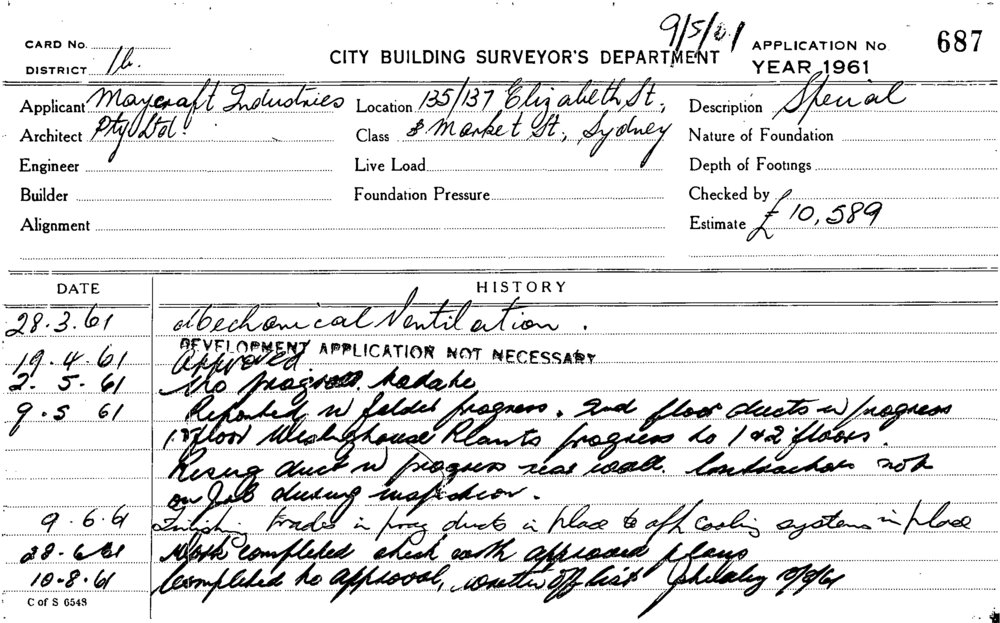 9/5/61
CARD No.
CITY BUILDING SURVEYOR'S DEPARTMENT
APPLICATION No. 687
DISTRICT 1b.
YEAR 1961
Applicant Maycraft Industries
Location 135/137 Elizabeth St.,
Description Special
Architect Pty Ltd.
Class & Market St., Sydney
Nature of Foundation
Engineer
Live Load
Depth of Footings
Builder
Foundation Pressure
Checked by
Alignment
Estimate £10,589
DATE HISTORY
28.3.61 Mechanical Ventilation.
DEVELOPMENT APPLICATION NOT NECESSARY
19.4.61 Approved.
2.5.61 No progress to date
9.5 61 Reported in folder progress. 2nd floor ducts in progress
1st floor Westinghouse Plants progress to 1 & 2 floors.
Rising duct in progress rear wall. Contractors not
on job during inspection.
9.6.61 Finishing trades in prog ducts in place to cooling systems in place
28.6.61 Work completed check with approved plans
10.8.61 Completed to approval, off list
C of S 6548